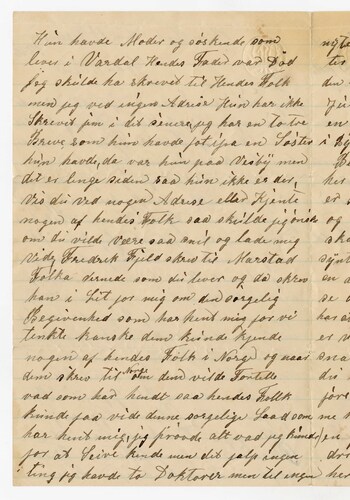 Hun havde Moder og søskende som
lever i Vardal Hendes Fader var Død
Jeg skulde ha skrevit til Hendes Folk
men jeg ved ingen Adrise Hun har ikke
Skrevit jem i det senere jeg har en to tre
Breve som hun havde fot ifra en Søster
hun havde da var hun paa Vesby men
det er lenge siden saa hun ikke er der
vis du ved nogen Adrese eller kjente
nogen af hendes Folk saa skulde jeg ønske
om du vilde være saa snil og lade mig
vide Fredrik Fjeld skrev til Marstad
Folka dernede som du lever og da skrev
han i Let for mig om den sørgelig
Begivenhed som har hent mig for vi
tenkte kanske dem kunde kjende
nogen af hendes Folk i Norge og naar
dem skrev til Norge om dem vilde Fortelle
vad som had hendt saa hendes Folk
kunde faa vide denne sorgelige Saad som
har hent mig jeg prøvde alt vad jeg kunde
for at Leive hende men det jalp ingen
ting jeg havde to Doktorer men til ingen